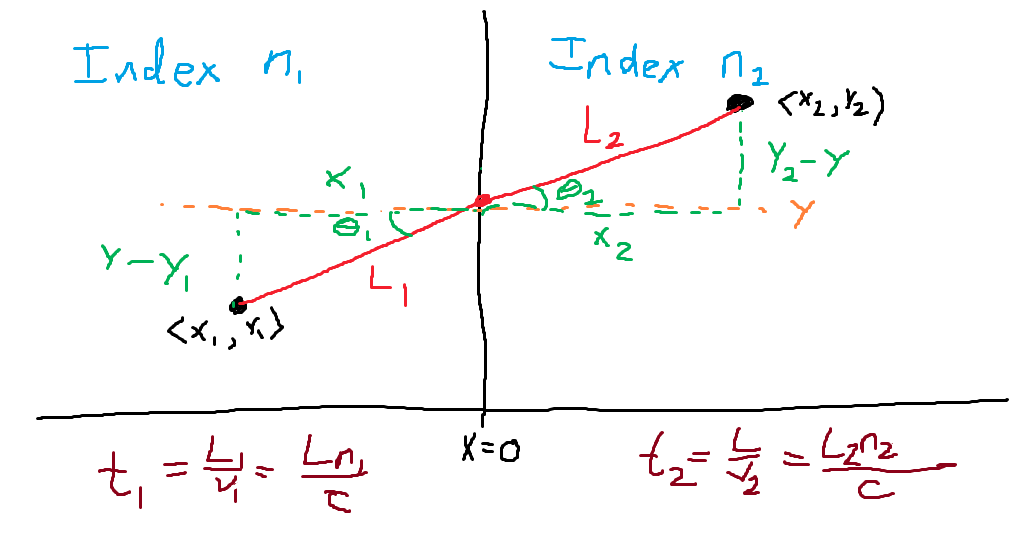 Index n₁
Index n₂
<x₂, y₂)
L₂
Y₂-Y
x₁
θ₂
θ₁
x₂
Y
Y-Y₁
L₁
<x₁, Y₁)
x=0
t₁ = L₁/v₁ = Ln₁/c
t₂ = L/v₂ = L₂n₂/c